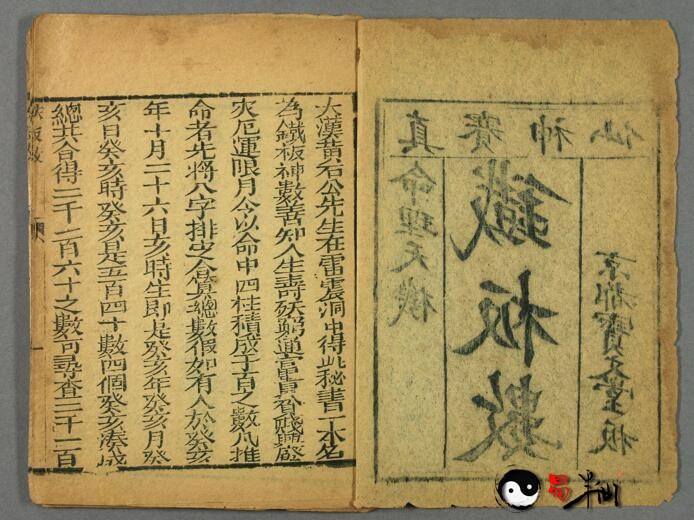 真賽神仙
命理天機
鐵板數
京都寶文堂板
大漢黄石公先生在雷震洞中得此秘書一本名
為鐵板神數善知人生壽殀窮通富貴貧賤興廢
灾厄運限月令以命中四柱積成千百之數凢推
命者先將八字排定合算總數假如有人於癸亥
年十月二十六日亥時生即是癸亥年癸亥月癸
亥日癸亥時癸亥是五百四十數四個癸亥湊成
總共合得二千一百六十之數可尋查二千一百
鉄板數
一
易半仙